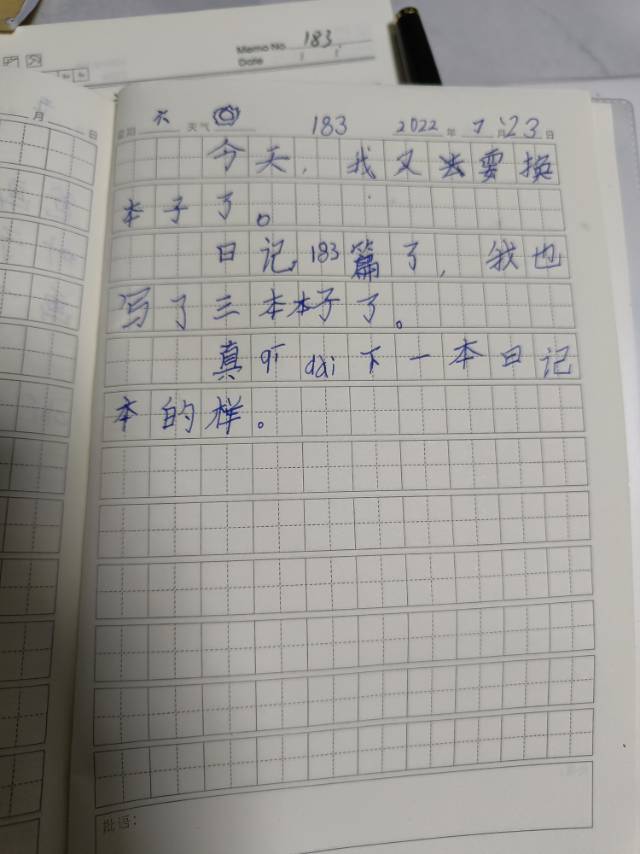 Memo No. 183
Date
月 日
星期 天 天气 183 2022年 1月23日
今天,我又要换
本子了。
日记183篇了,我也
写了三本本子了。
真qī dài下一本日记
本的样。
批语: